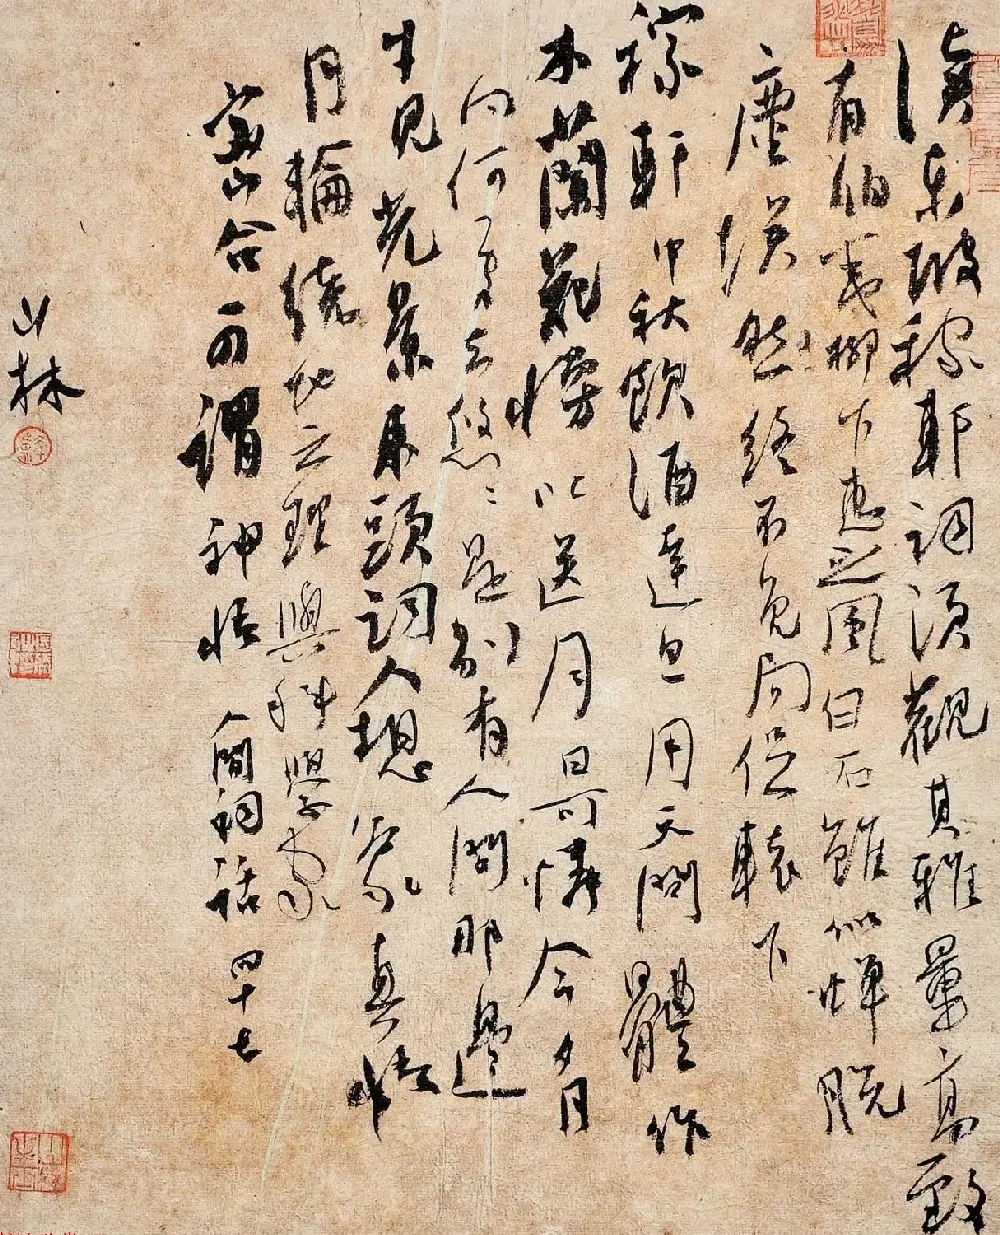 讀東坡稼軒詞須觀其雅量高致
有伯夷柳下惠之風白石雖似蟬脫
塵埃然終不免局促轅下
稼軒中秋飲酒達旦用天問體作
木蘭花慢以送月曰可憐今夕月
向何處去悠悠是別有人間那邊
才見光景東頭詞人想象直悟
月輪繞地之理與科學家
密合可謂神悟 人間詞話 四十七
山林